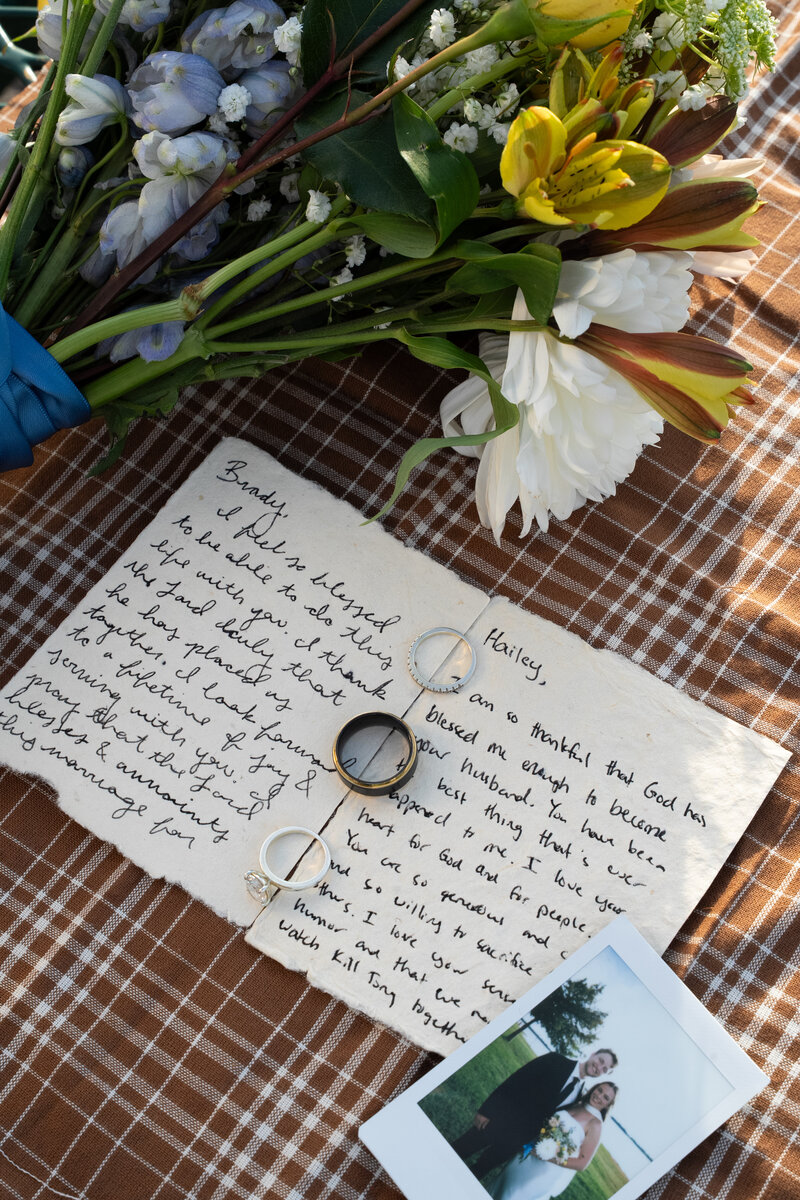 Brady,
I feel so blessed
to be able to do this
life with you. I thank
the Lord daily that
he has placed us
together. I look forward
to a lifetime of joy &
serving with you. I
pray that the Lord
blesses & annoints
this marriage for
Hailey,
I am so thankful that God has
blessed me enough to become
your husband. You have been
the best thing that's ever
happened to me. I love your
heart for God and for people.
You are so generous and
and so willing to sacrifice
others. I love your
humor and that we
watch Kill Tony together